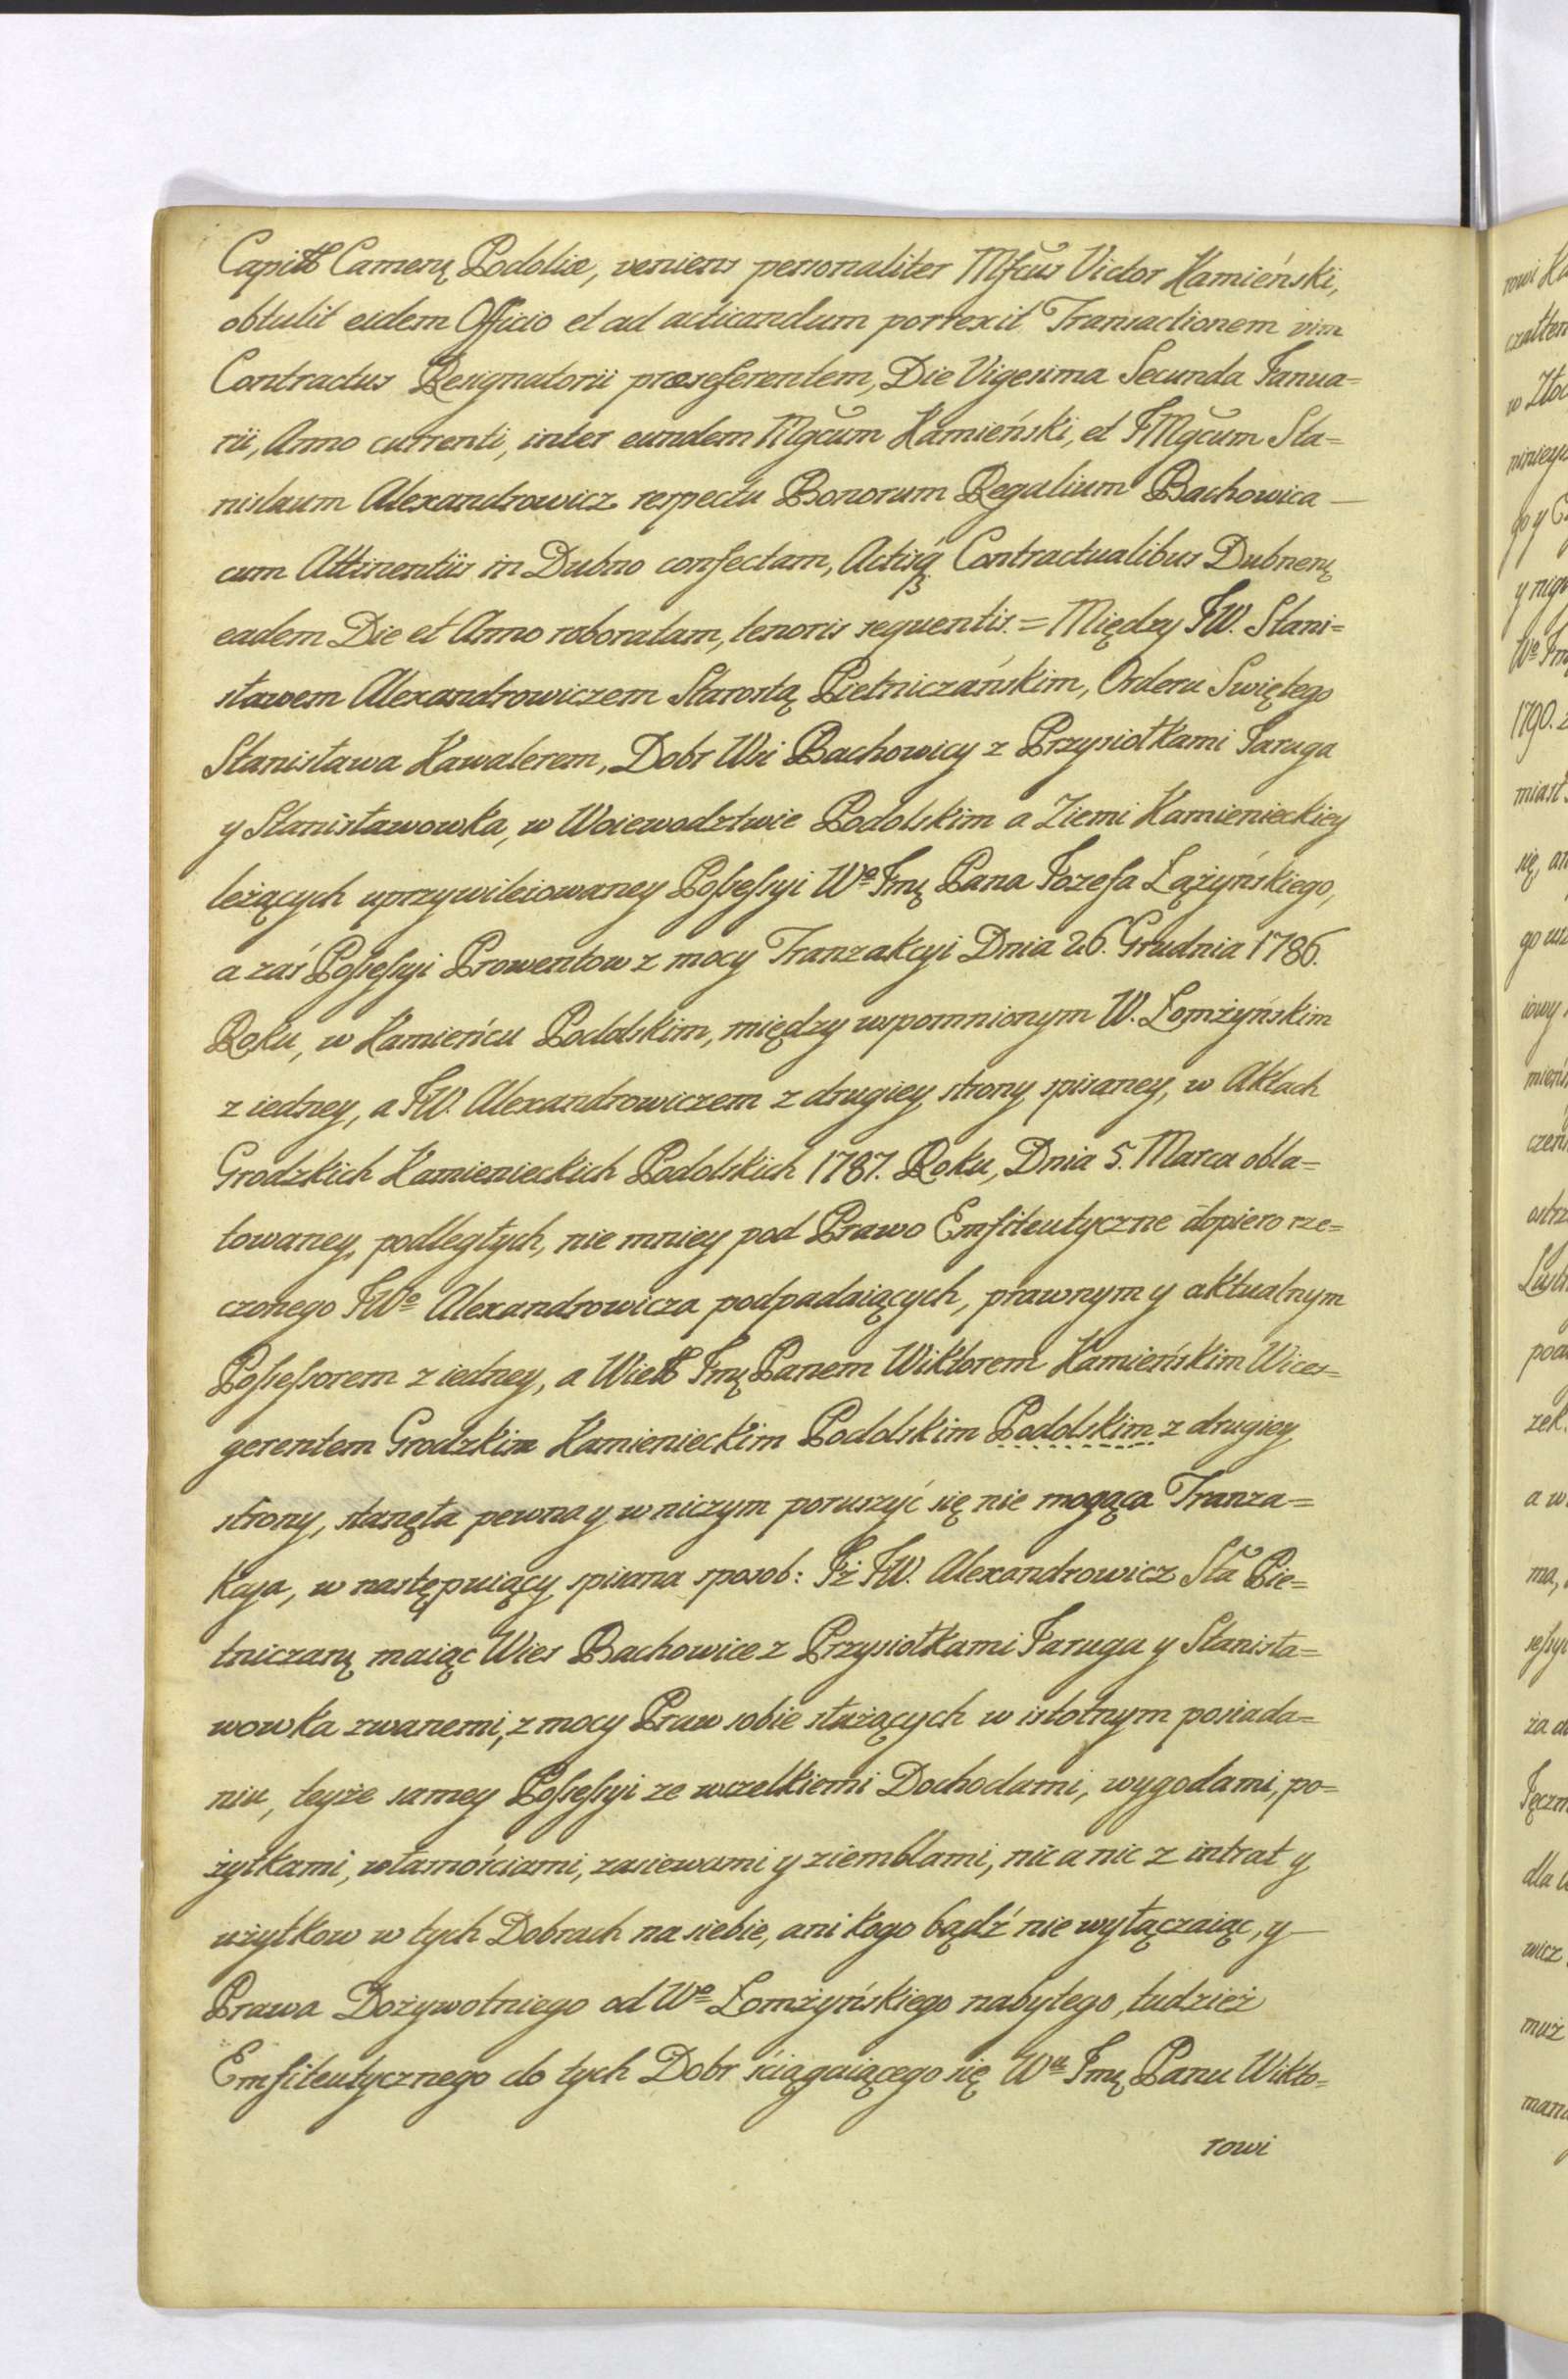 Capitl Camenę Podoliæ, veniens personaliter Mfcus Victor Kamieński,
obtulit eidem Officio et ad acticandum porrexit Transactionem vim
Contractus Resignatorii præseferentem, Die Vigesima Secunda Janua=
rii, Anno currenti, inter eundem Mgcum Kamieński, et JMgcum Sta=
nislaum Alexandrowicz respectu Bonorum Regalium Bachowica —
cum Attinentiis in Dubno confectam, Actisq Contractualibus Dubnenę
eadem Die et Anno roboratam, tenoris sequentis. = Między JW. Stani=
sławem Alexandrowiczem Starostą Pietniczańskim, Orderu Swiętego
Stanisława Kawalerem, Dobr Wsi Bachowicy z Przysiołkami Jaruga
y Stanisławowka, w Woiewodztwie Podolskim a Ziemi Kamienieckiey
leżących uprzywileiowaney Possessyi Wo Jmę Pana Jozefa Łążyńskiego,
a zaś Possessyi Prowentow z mocy Tranzakcyi Dnia 26. Grudnia 1786.
Roku, w Kamieńcu Podolskim, między wspomnionym W. Łomżyńskim
z iedney, a JW. Alexandrowiczem z drugiey strony spisaney, w Aktach
Grodzkich Kamienieckich Podolskich 1787. Roku, Dnia 5. Marca obla=
towaney, podległych, nie mniey pod Prawo Emfiteutyczne dopiero rze=
czonego JWo Alexandrowicza podpadaiących, prawnym y aktualnym
Possessorem z iedney, a Wiel Jmę Panem Wiktorem Kamieńskim Wices=
gerentem Grodzkim Kamienieckim Podolskim Podolskim z drugiey
strony, stanęła pewna y w niczym poruszyć się nie mogąca Tranza=
kcya, w następuiący spisana sposob: Iż JW. Alexandrowicz Sta Pie=
tniczanę maiąc Wies Bachowice z Przysiołkami Jaruga y Stanisła=
wowka zwanemi, z mocy Praw sobie służących w istotnym posiada=
niu, teyże samey Possessyi ze wszelkiemi Dochodami, wygodami, po=
żytkami, własnościami, zasiewami y ziemblami, nic a nic z intrat y
użytkow w tych Dobrach na siebie, ani kogo bądź nie wyłączaiąc, y —
Prawa Dożywotniego od Wo Łomżyńskiego nabytego, tudzież
Emfiteutycznego do tych Dobr ściągaiącego się Wu Jmę Panu Wikto=
rowi